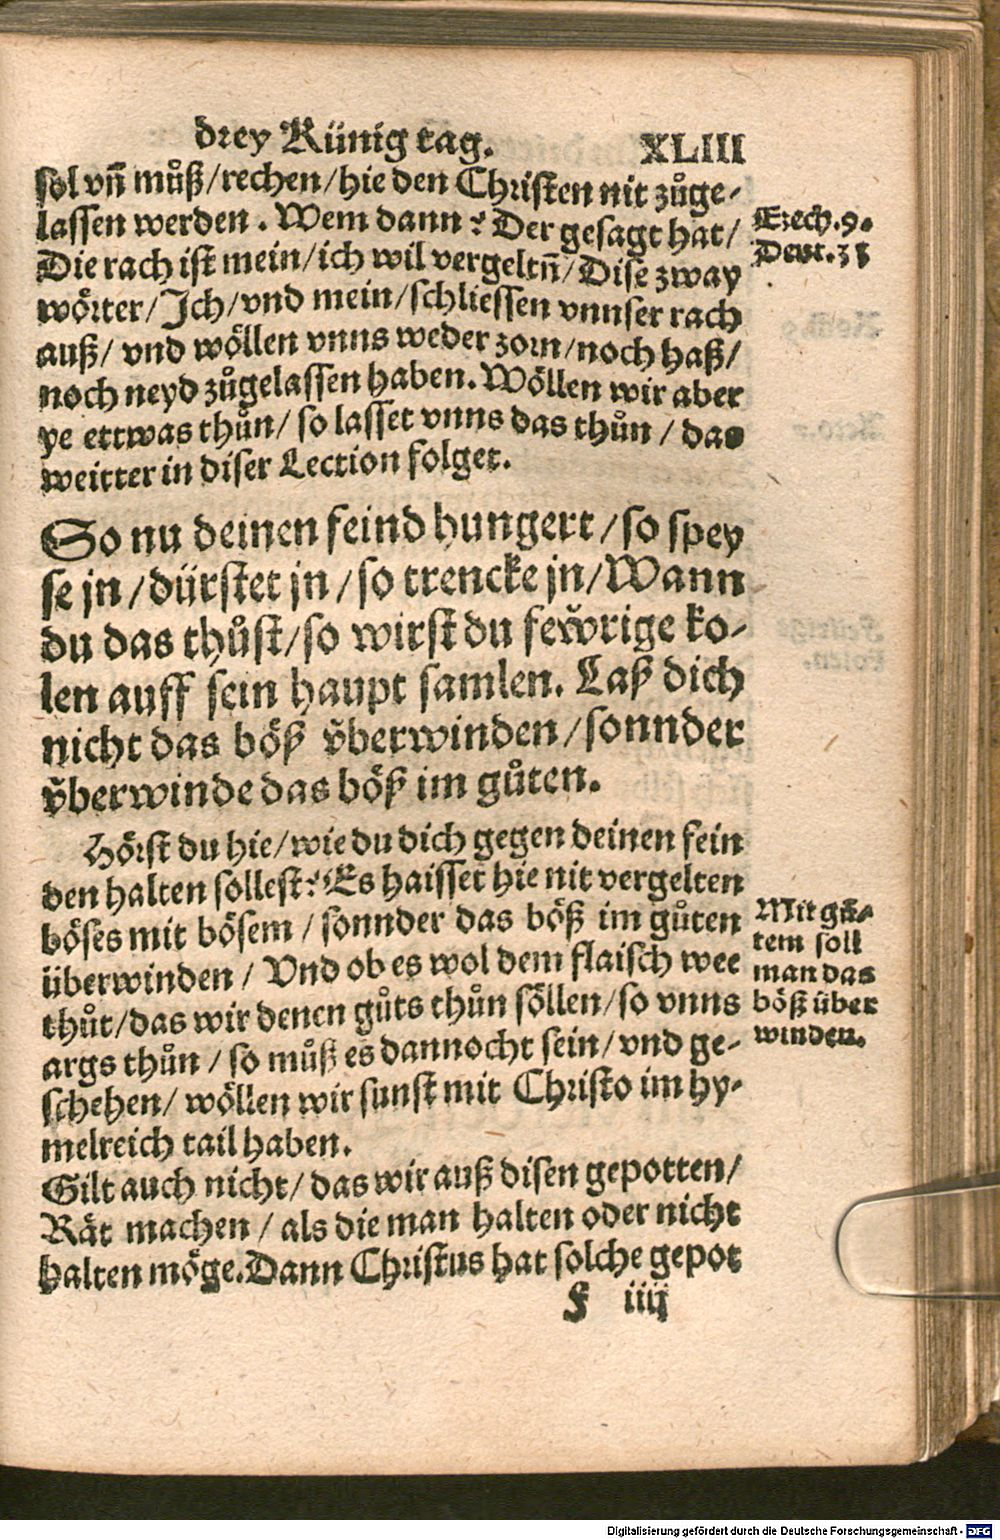 drey Künig tag. XLIII
sol vn̄ můß/rechen/hie den Christen nit zůge-
lassen werden. Wem dann? Der gesagt hat/
Die rach ist mein/ich wil vergeltn̄/Dise zway
wörter/Ich/vnd mein/schliessen vnnser rach
auß/ vnd wöllen vnns weder zorn/noch haß/
noch neyd zůgelassen haben. Wöllen wir aber
ye ettwas thůn/ so lasset vnns das thůn/ das
weitter in diser Lection folget.
Ezech.9.
Deut.32
So nu deinen feind hungert/so spey
se jn/dürstet jn/so trencke jn/Wann
du das thůst/so wirst du fewrige ko-
len auff sein haupt samlen. Laß dich
nicht das böß vberwinden/sonnder
vberwinde das böß im gůten.
Hörst du hie/wie du dich gegen deinen fein
den halten sollest? Es haisset hie nit vergelten
böses mit bösem/sonnder das böß im gůten
überwinden/ Vnd ob es wol dem flaisch wee
thůt/das wir denen gůts thůn söllen/so vnns
args thůn/so můß es dannocht sein/vnd ge-
schehen/ wöllen wir sunst mit Christo im hy-
melreich tail haben.
Mit gů-
tem soll
man das
böß über
winden.
Gilt auch nicht/das wir auß disen gepotten/
Rät machen/als die man halten oder nicht
halten möge. Dann Christus hat solche gepot
F iiij
Digitalisierung gefördert durch die Deutsche Forschungsgemeinschaft - DFG